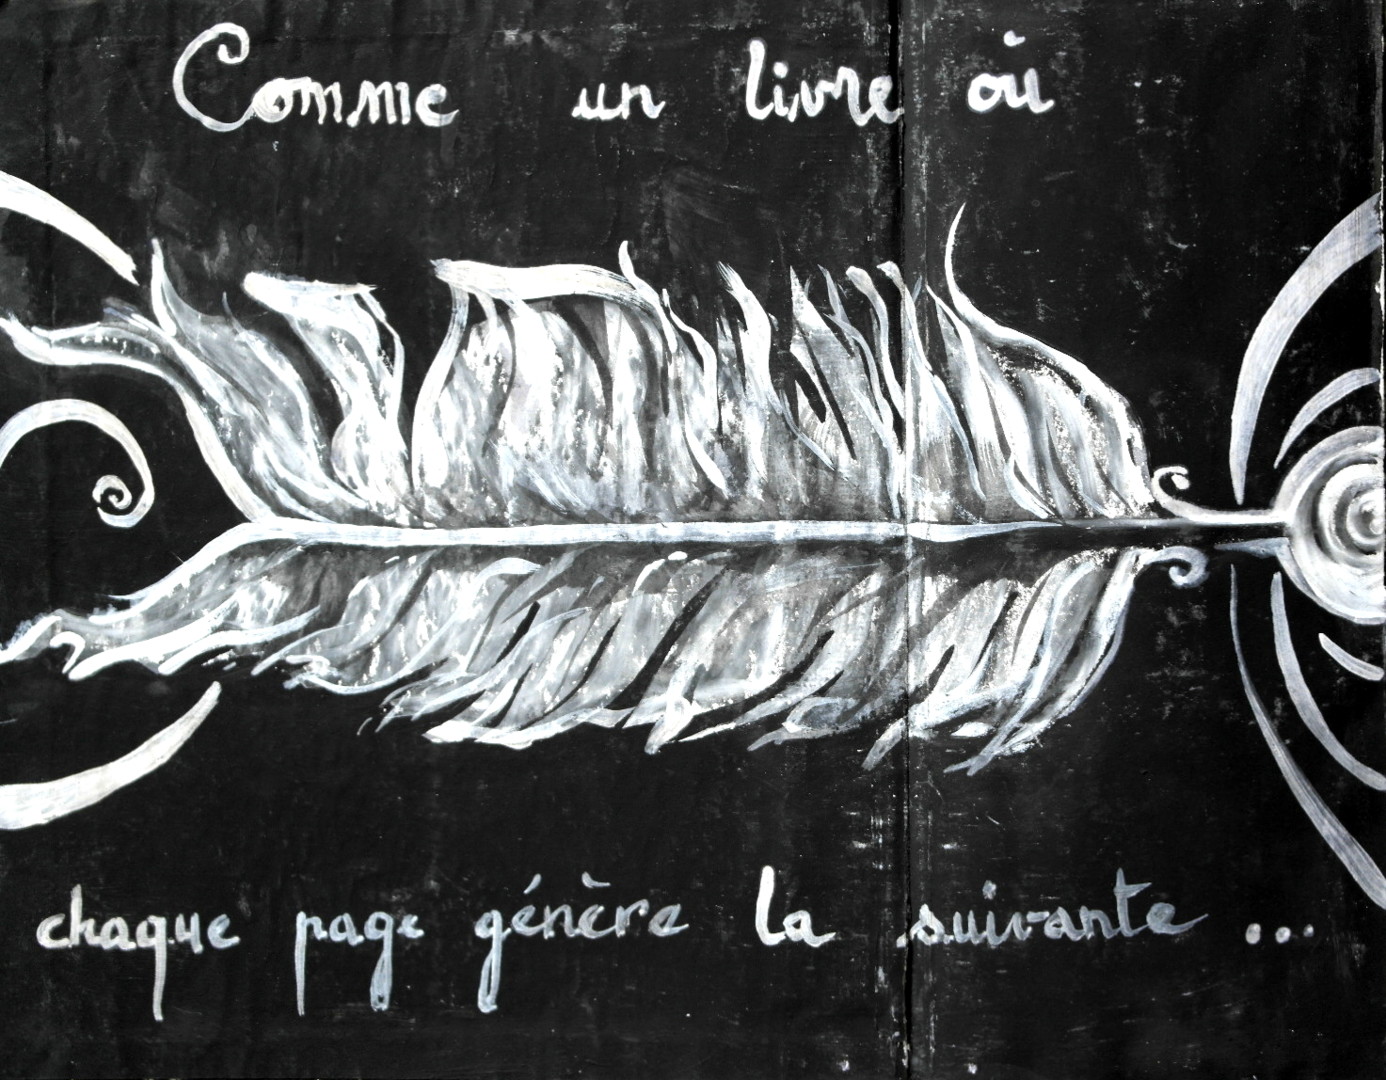 Comme un livre où
chaque page génère la suivante ...